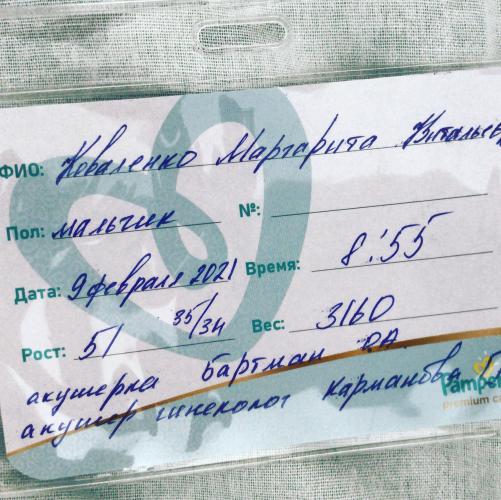 ФИО: Коваленко Маргарита Витальев
Пол: мальчик №:
Дата: 9 февраля 2021 Время: 8:55
Рост: 51 35/34 Вес: 3160
акушерка бартман О.А.
акушер гинеколог Карманова
Pampe
premium c